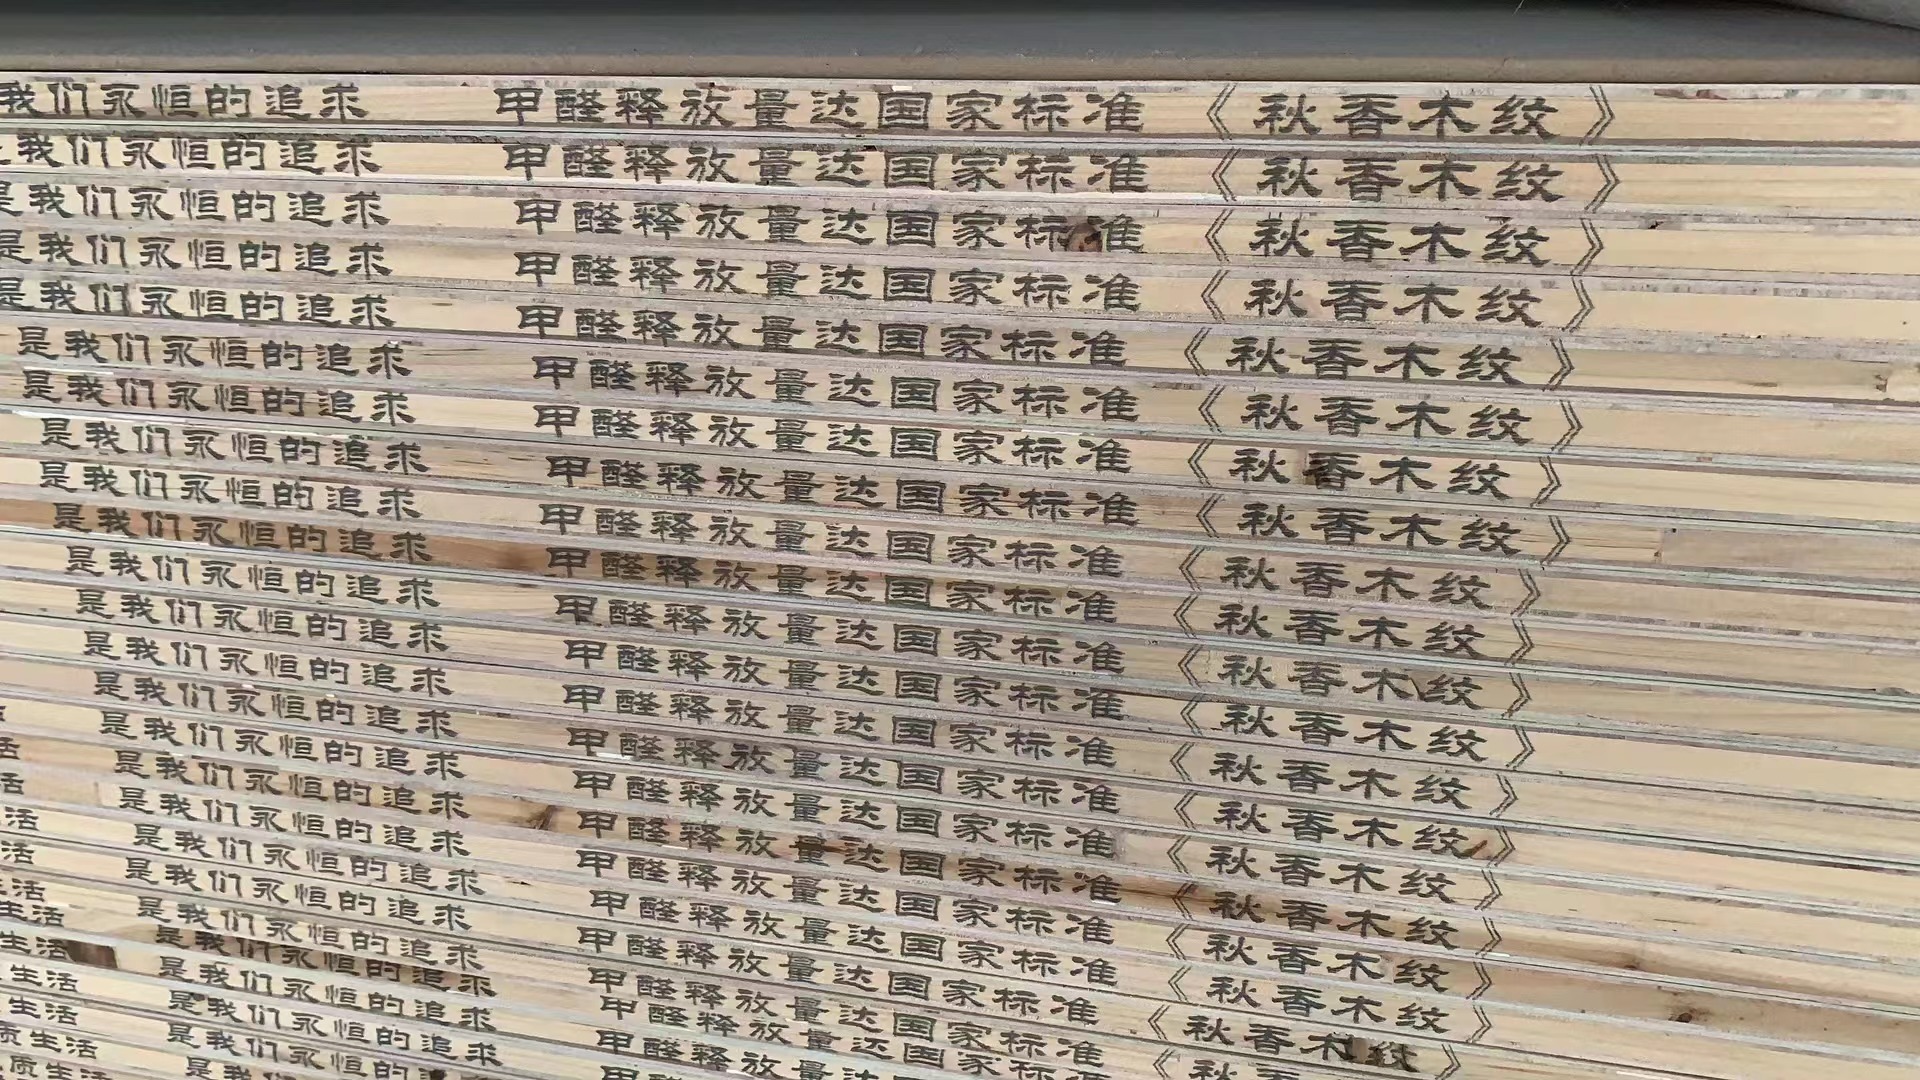 我们永恒的追求 甲醛释放量达国家标准 《秋香木纹》
我们永恒的追求 甲醛释放量达国家标准 《秋香木纹》
是我们永恒的追求 甲醛释放量达国家标准 《秋香木纹》
是我们永恒的追求 甲醛释放量达国家标准 《秋香木纹》
是我们永恒的追求 甲醛释放量达国家标准 《秋香木纹》
是我们永恒的追求 甲醛释放量达国家标准 《秋香木纹》
是我们永恒的追求 甲醛释放量达国家标准 《秋香木纹》
是我们永恒的追求 甲醛释放量达国家标准 《秋香木纹》
是我们永恒的追求 甲醛释放量达国家标准 《秋香木纹》
是我们永恒的追求 甲醛释放量达国家标准 《秋香木纹》
是我们永恒的追求 甲醛释放量达国家标准 《秋香木纹》
是我们永恒的追求 甲醛释放量达国家标准 《秋香木纹》
是我们永恒的追求 甲醛释放量达国家标准 《秋香木纹》
是我们永恒的追求 甲醛释放量达国家标准 《秋香木纹》
是我们永恒的追求 甲醛释放量达国家标准 《秋香木纹》
活 是我们永恒的追求 甲醛释放量达国家标准 《秋香木纹》
活 是我们永恒的追求 甲醛释放量达国家标准 《秋香木纹》
活 是我们永恒的追求 甲醛释放量达国家标准 《秋香木纹》
活 是我们永恒的追求 甲醛释放量达国家标准 《秋香木纹》
生活 是我们永恒的追求 甲醛释放量达国家标准 《秋香
生活 是我们永恒的追求 甲醛释放量达国家标
生活 是我们永恒的追求 甲醛释放量达
生活 是我们永恒的追求 甲醛
生活 是我们永恒的追求
质生活 是我们永恒的
质生活